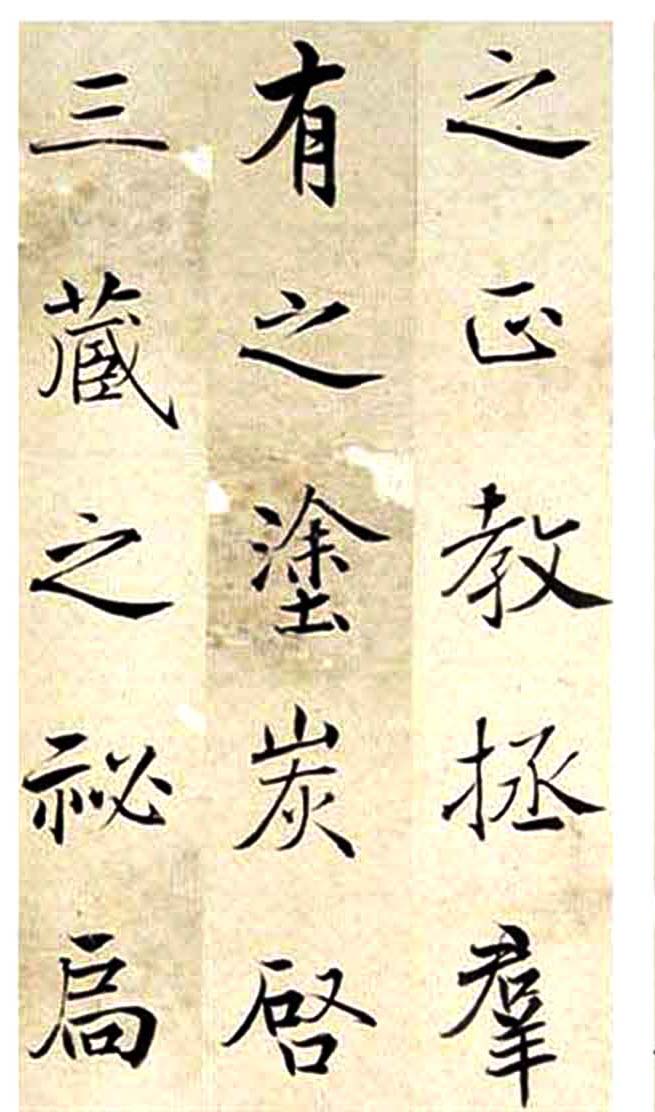 之正教拯羣
有之塗炭啓
三藏之祕扃